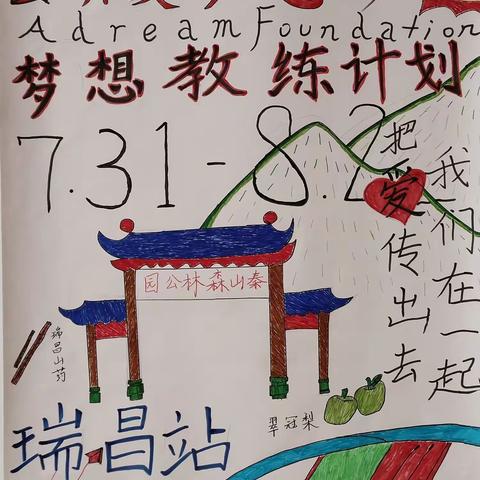 Adream Foundation
梦想教练计划
7.31-8.2
把爱传出去
我们在一起
园公林森山秦
瑞昌山药
翠冠梨
瑞昌站